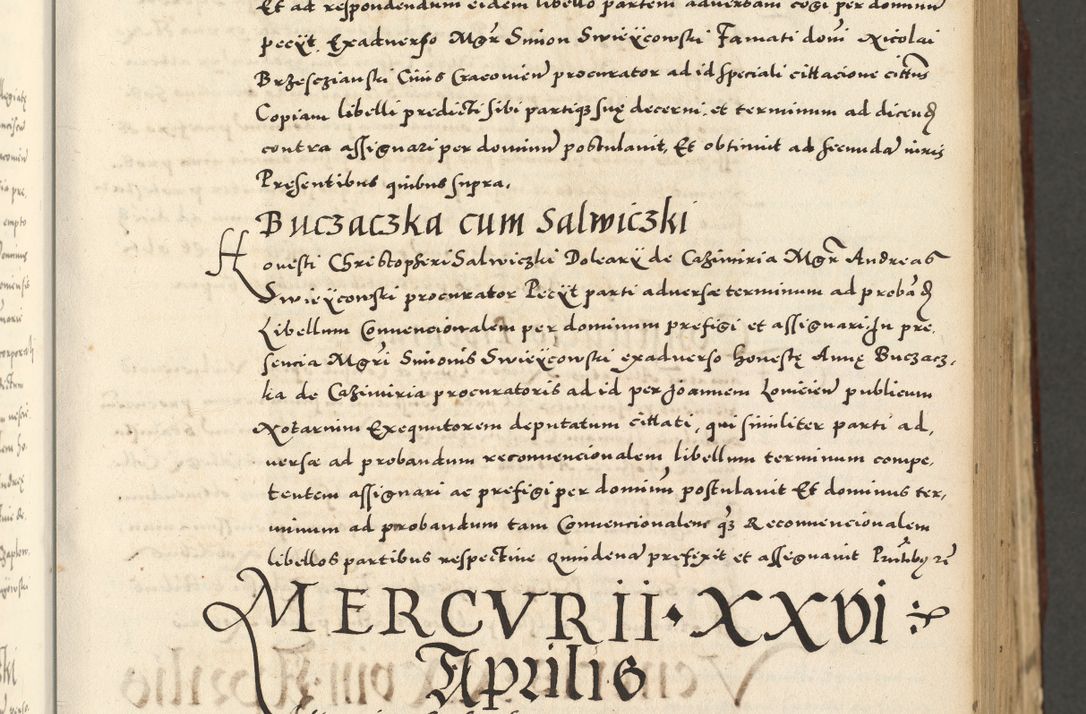 Et ad respondendum eidem libello partem adversam cogi per dominum
peciit. Exadverso Mgr̃ Simon Swieycowski Famati dom̃ Nicolai
Brzesczianski Civis Cracovień procurator ad id speciali cittacione cittus
Copiam libelli predicti sibi partiq3 suę decerni, et terminum ad dicend
contra assignari per dominum postulavit, Et obtinuit ad secundã iuris
Presentibus quibus supra.
Buczaczka cum Salwiczki
Honesti Christopheri Salwiczki Doleary de Cazimiria Mgr̃ Andreas
Swieycowski procurator Peciit parti adversæ terminum ad probãd
Libellum Convencionalem per dominum prefigi et assignari. In pre,
sencia Mgr̃i Simonis Swieycowski exadverso honestę Annę Buczacz,
ka de Cazimiria procuratoris ad id per Joannem Lovicień publicum
Notarium Exequutorem deputatum cittati, qui similiter parti ad,
versæ ad probandum reconvencionalem libellum terminum compe,
tentem assignari ac prefigi per dominũ postulavit Et dominus ter,
minum ad probandum tam Convencionalem q3 Reconvencionalem
libellos partibus respective quindenã prefixit et assignavit
MERCVRII · XXVI
Aprilis